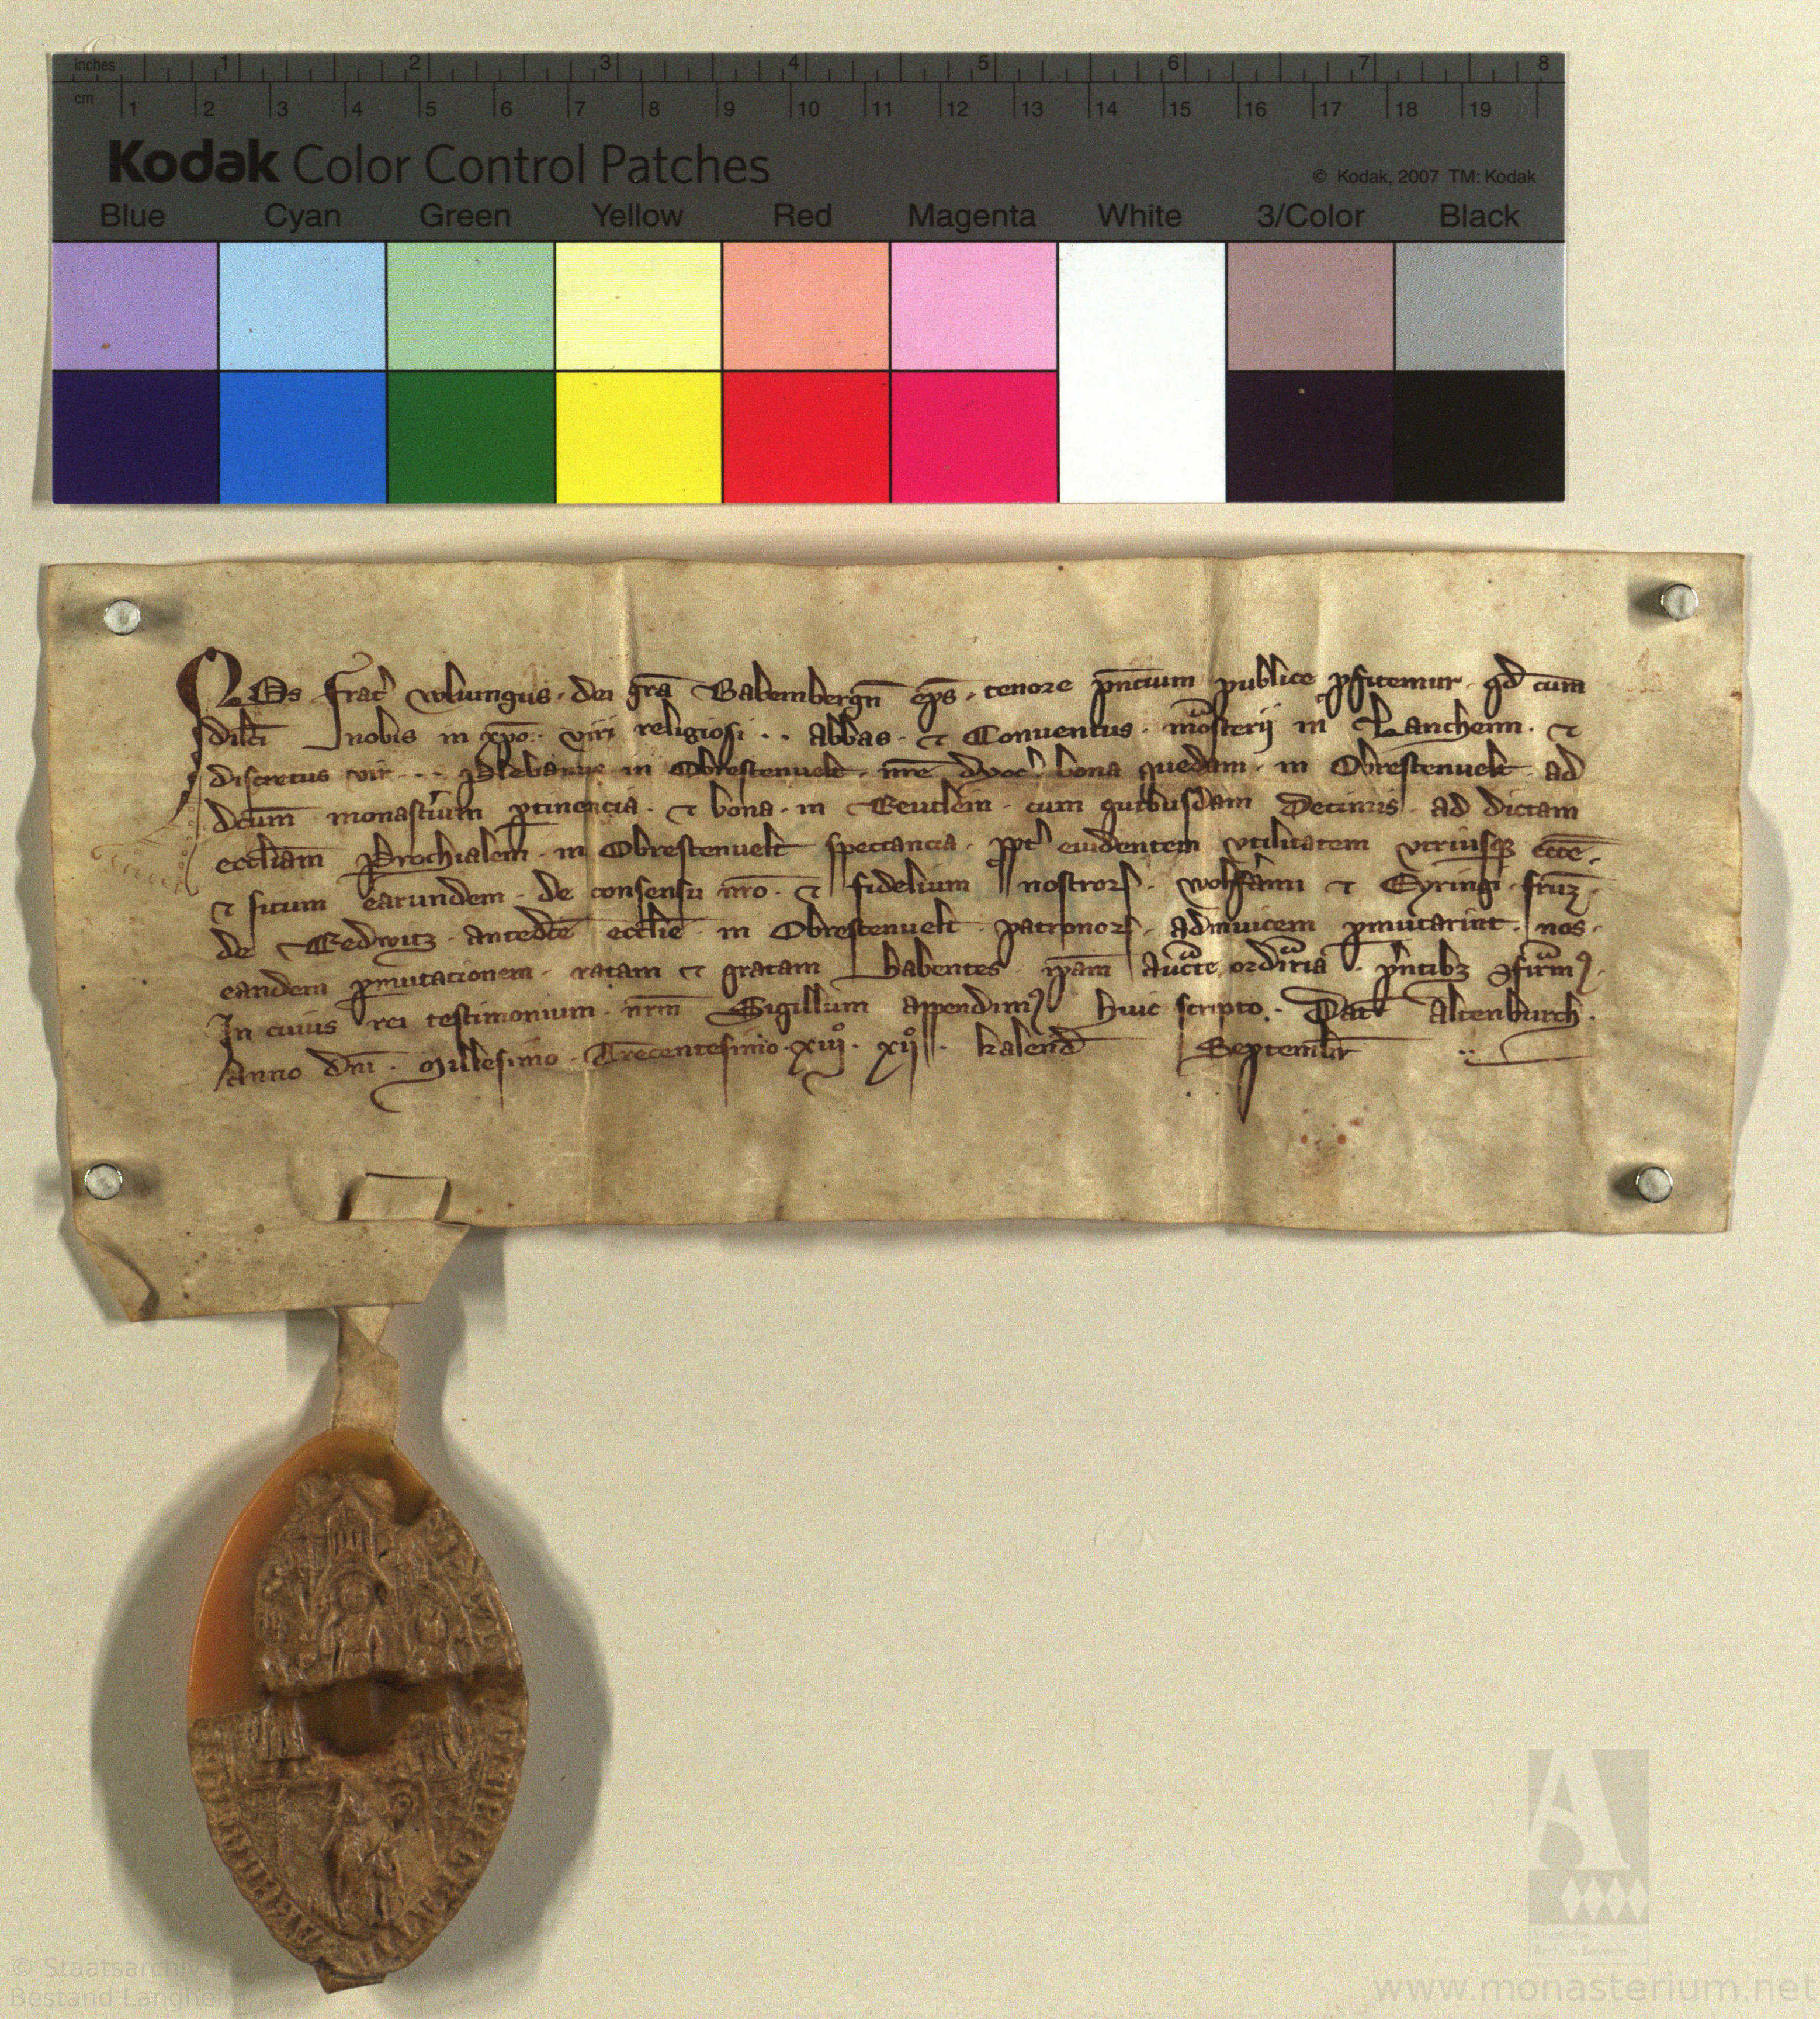 inches 1 2 3 4 5 6 7 8
cm 1 2 3 4 5 6 7 8 9 10 11 12 13 14 15 16 17 18 19
Kodak Color Control Patches
© Kodak, 2007 TM: Kodak
Blue Cyan Green Yellow Red Magenta White 3/Color Black
NOs frat᷒ wluingus · dei gr̄a Babembergn̄ ep̄s · tenore pn̄cium publice ꝓfitemur · qd̄ cum
dilc̄i nobis in xp̄o · viri religiosi · · abbas · ⁊ Conuentus · mōsterij in Lancheim · ⁊
discretus vir · · plebanus in Obrestenuelt · nr̄e dyoc᷒ bona quedam · in Obrestenuelt · ad
dc̄um monast᷒ium ꝑtinencia · ⁊ bona · in Reutlein · cum quibusdam Decimis · ad dictam
eccl̄iam ꝑrochialem · in Obrestenuelt spectancia · ꝓpt᷒ euidentem vtilitatem vtriusqꝫ ecc̄e ·
⁊ situm earundem · de consensu nr̄o · ⁊ fidelium nostroꝝ · wolf̄ami ⁊ Eyringi · fr̄uꝫ ·
de Redwitz · antedc̄e eccl̄ie · in Obrestenuelt · patronoꝝ · adinuicem ꝑmutarint · nos ·
eandem ꝑmutacionem · ratam ⁊ gratam habentes · ip̄am auc̄te ordīria · pn̄tibꝫ ꝯfirmꝰ ·
In cuius rei testimonium · nr̄m Sigillum appendimꝰ huic scripto · Dat̄ Altenburch ·
Anno dn̄i · Millesimo · Trecentesimo · xiijº · xijº · kalend̄ Septembr̄
© Staatsarchiv
Bestand Langheim
www.monasterium.net